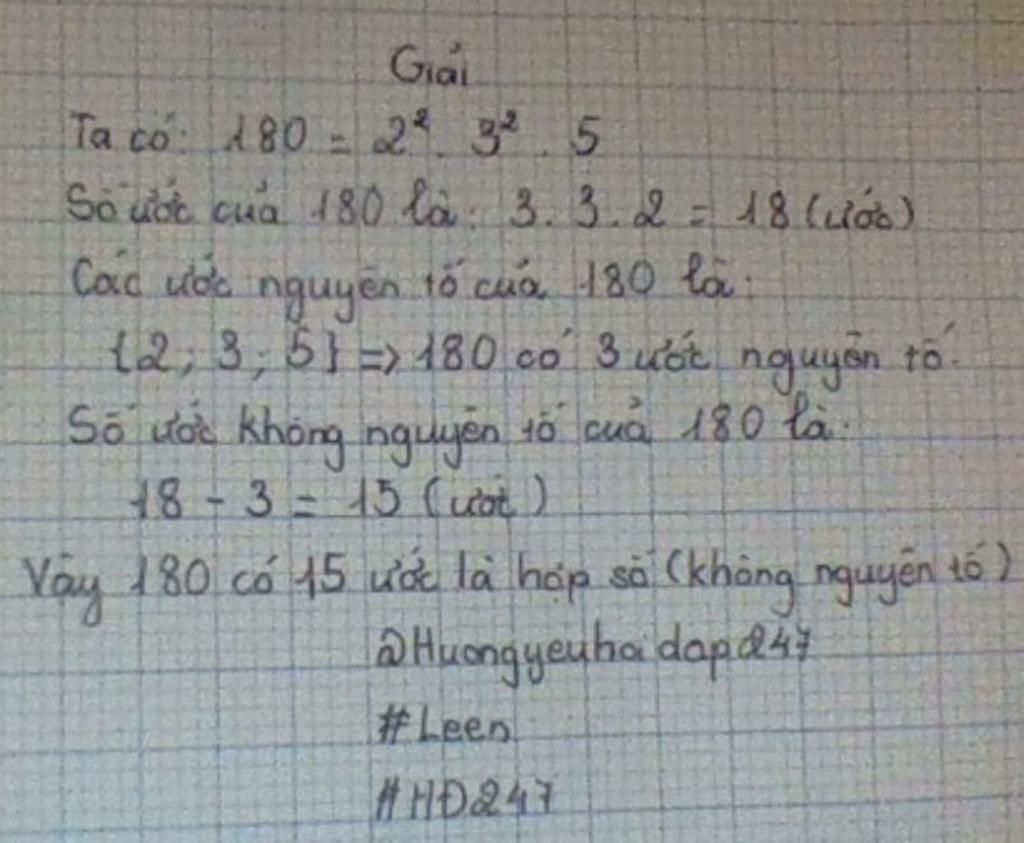 Giải
Ta có: 180 = 2². 3². 5
Số ước của 180 là: 3. 3. 2 = 18 (ước)
Các ước nguyên tố của 180 là:
{2; 3; 5} => 180 có 3 ước nguyên tố.
Số ước không nguyên tố của 180 là:
18 - 3 = 15 (ước)
Vậy 180 có 15 ước là hợp số (không nguyên tố)
@Huongyeuhoidap247
#Leen
#HĐ247